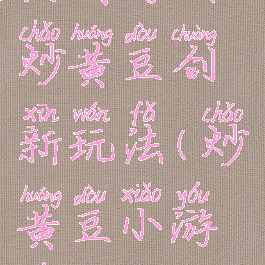 chǎo huáng dòu chuàng
炒黄豆创
xīn wán fǎ chǎo
新玩法(炒
huáng dòu xiǎo yóu
黄豆小游